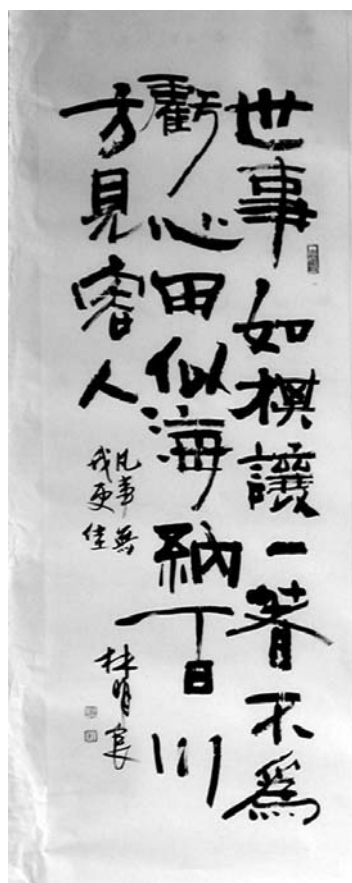 世事如棋讓一著不為
虧心田似海納百川
方見容人
凡事無
我更佳
林明良